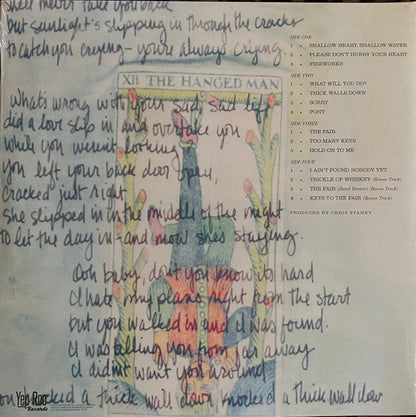 she'll never take you back
but sunlight's slipping in through the cracks
to catch you crying - you're always crying.
XII THE HANGED MAN
What's wrong with your sad, sad life
did a love slip in and overtake you
while you weren't looking
you left your back door open,
cracked just right,
she slipped in in the middle of the night
to let the day in - and now she's staying.
Ooh baby, don't you know its hard
I had my plans right from the start
but you walked in and I was found.
I was telling you from far away
I didn't want you around
you knocked a thick wall down knocked a thick wall down
SIDE ONE
1 • SHALLOW HEART, SHALLOW WATER
2 • PLEASE DON'T HURRY YOUR HEART
3 • FIREWORKS
SIDE TWO
1 • WHAT WILL YOU DO?
2 • THICK WALLS DOWN
3 • SORRY
4 • PONY
SIDE THREE
1 • THE FAIR
2 • TOO MANY KEYS
3 • HOLD ON TO ME
SIDE FOUR
1 • I AIN'T FOUND NOBODY YET
2 • TRICKLE OF WHISKEY (Bonus Track)
3 • THE FAIR (Band Version) (Bonus Track)
4 • KEYS TO THE FAIR (Bonus Track)
PRODUCED BY CHRIS STAMEY
Yep Roc
Records